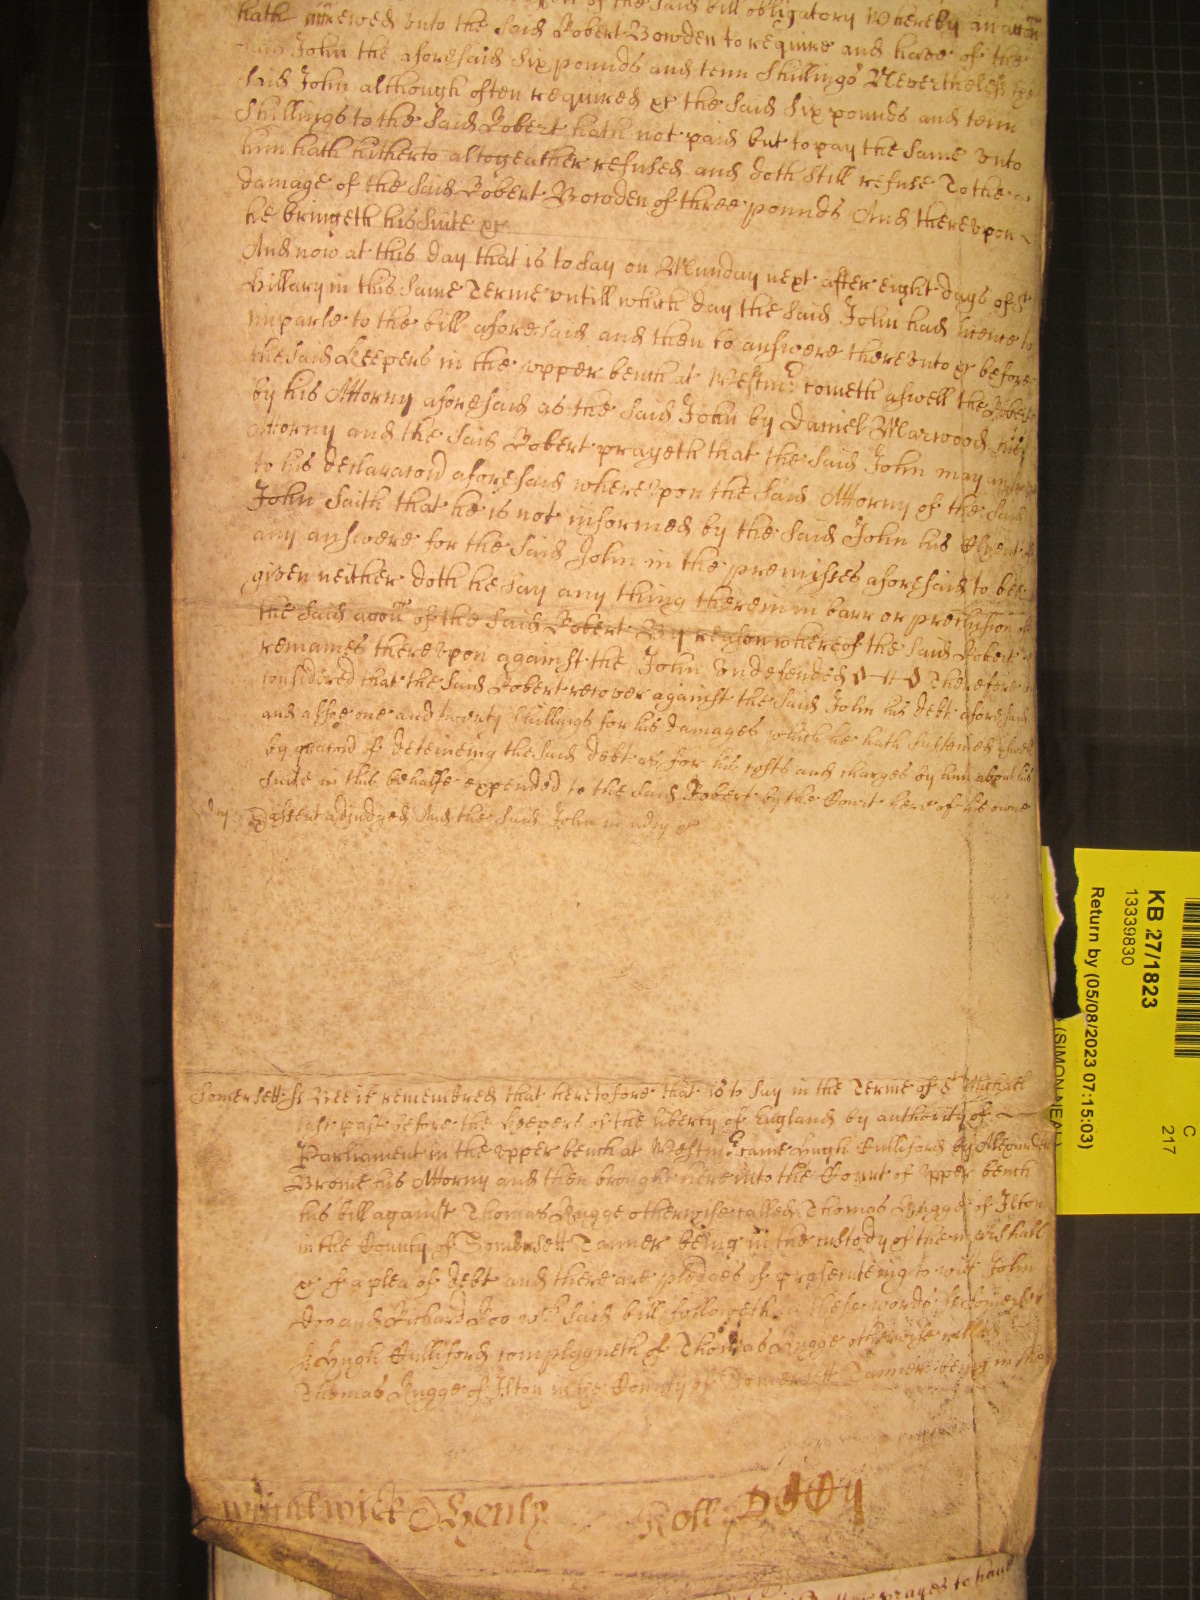 of the said bill obligatory Whereby an accon
hath accrewed unto the said Robert Bowden to require and have of the
said John the aforesaid six pounds and tenn shillings Neverthelesse the
said John although often required &c the said six pounds and tenn
shillings to the said Robert hath not paid but to pay the same unto
him hath hitherto altogeather refused and doth still refuse To the
damage of the said Robert Bowden of three pounds And thereupon
he bringeth his suite &c
And now at this day that is to say on Munday next after eight dayes of St
Hillary in this same Terme untill which day the said John had licence to
imparle to the bill aforesaid and then to answere thereunto &c before
the said Keepers in the upper bench at Westmr cometh aswell the Robert
by his Attorny aforesaid as the said John by Daniel Marwood his
Attorny and the said Robert prayeth that the said John may answere
to his declaracon aforesaid whereupon the said Attorny of the said
John saith that he is not informed by the said John his Clyent
any answere for the said John in the premisses aforesaid to bee
given neither doth he say any thing therein in barr or preclusion of
the said accon of the said Robert By reason whereof the said Robert
remaines thereupon against the John undefended Therefore
considered that the said Robert recover against the said John his debt aforesaid
and alsoe one and twenty shillings for his damages which he hath susteined aswell
by occacion of deteineing the said debt as for his costs and charges by him about his
suite in this behalfe expended to the said Robert by the Court here of his owne
assent adjudged And the said John in mercy &c
Somersett ss Bee it remembred that heretofore that is to say in the Terme of St Michael
last past before the Keepers of the liberty of England by authority of
Parliament in the upper bench at Westmr came Hugh Culliford by Alexander
Brome his Attorny and then brought here into the Court of upper bench
his bill against Thomas Rugge otherwise called Thomas Rugge of Ilton
in the County of Somersett Tanner being in the custody of the marshall
&c of a plea of debt and there are pledges of prosecuteing to wit John
Doo and Richard Roo wch said bill followeth in these words ss Somersett
ss Hugh Culliford complayneth of Thomas Rugge otherwise called
Thomas Rugge of Ilton in the County of Somersett Tanner being in the
Wightwick & Henly Roll
prayes to have
KB 27/1823
13339830
Return by (05/08/2023 07:15:03)
(SIMON NEAL)
C
217